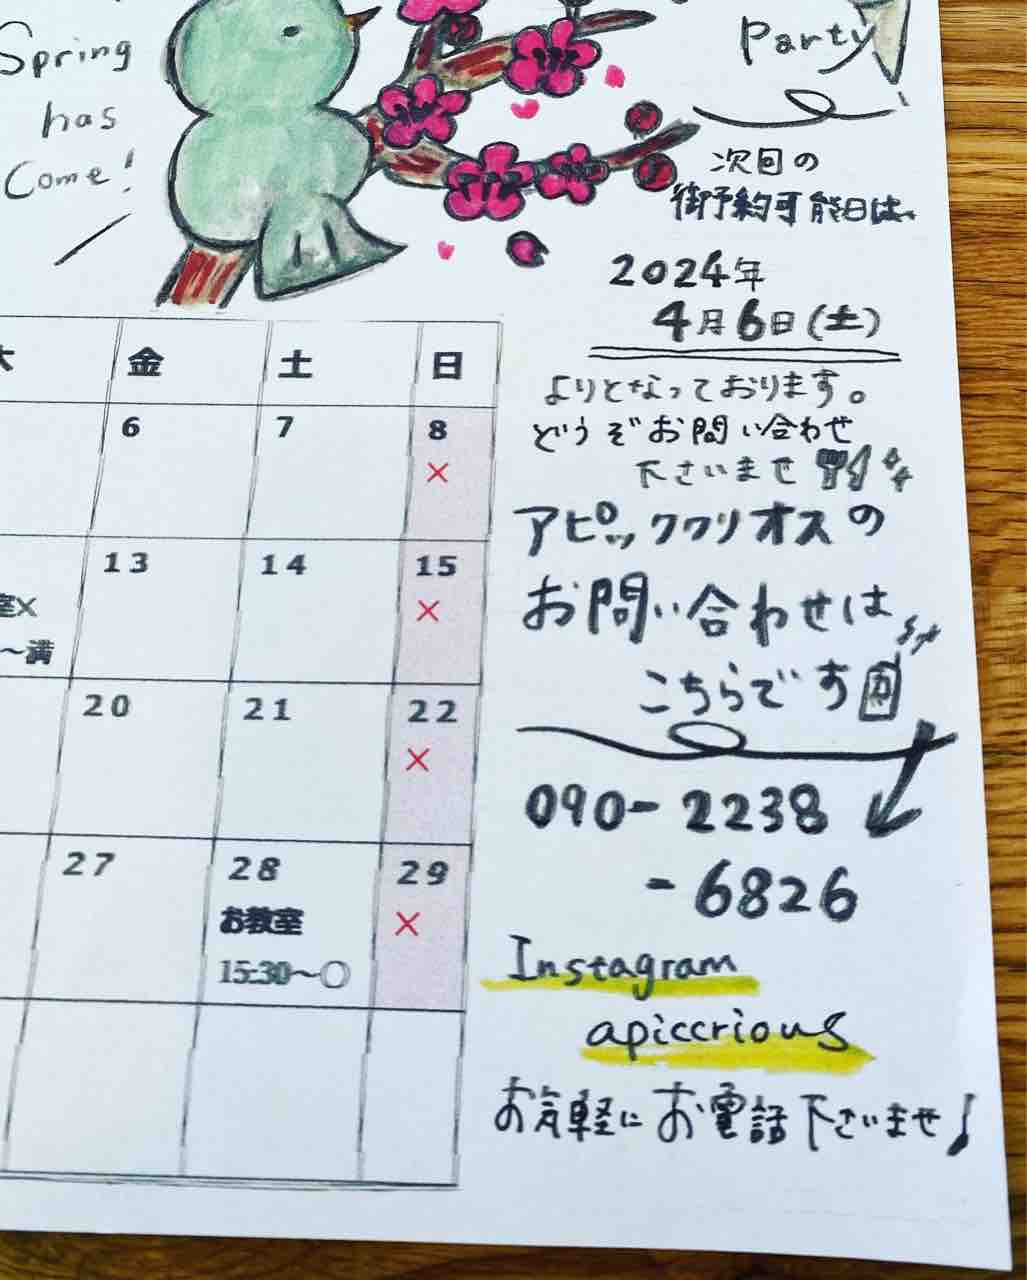 Spring
has
Come!
Party
次回の
御予約可能日は、
2024年
4月6日(土)
よりとなっております。
どうぞお問い合わせ
下さいませ
アピッククリオスの
お問い合わせは
こちらです
090-2238
-6826
Instagram
apiccrious
お気軽にお電話下さいませ!
木 金 土 日
6 7 8
×
13 14 15
室× ×
～満
20 21 22
×
27 28 29
お教室 ×
15:30～○